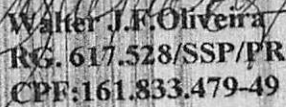 Walter J.F.Oliveira
RG. 617.528/SSP/PR
CPF:161.833.479-49